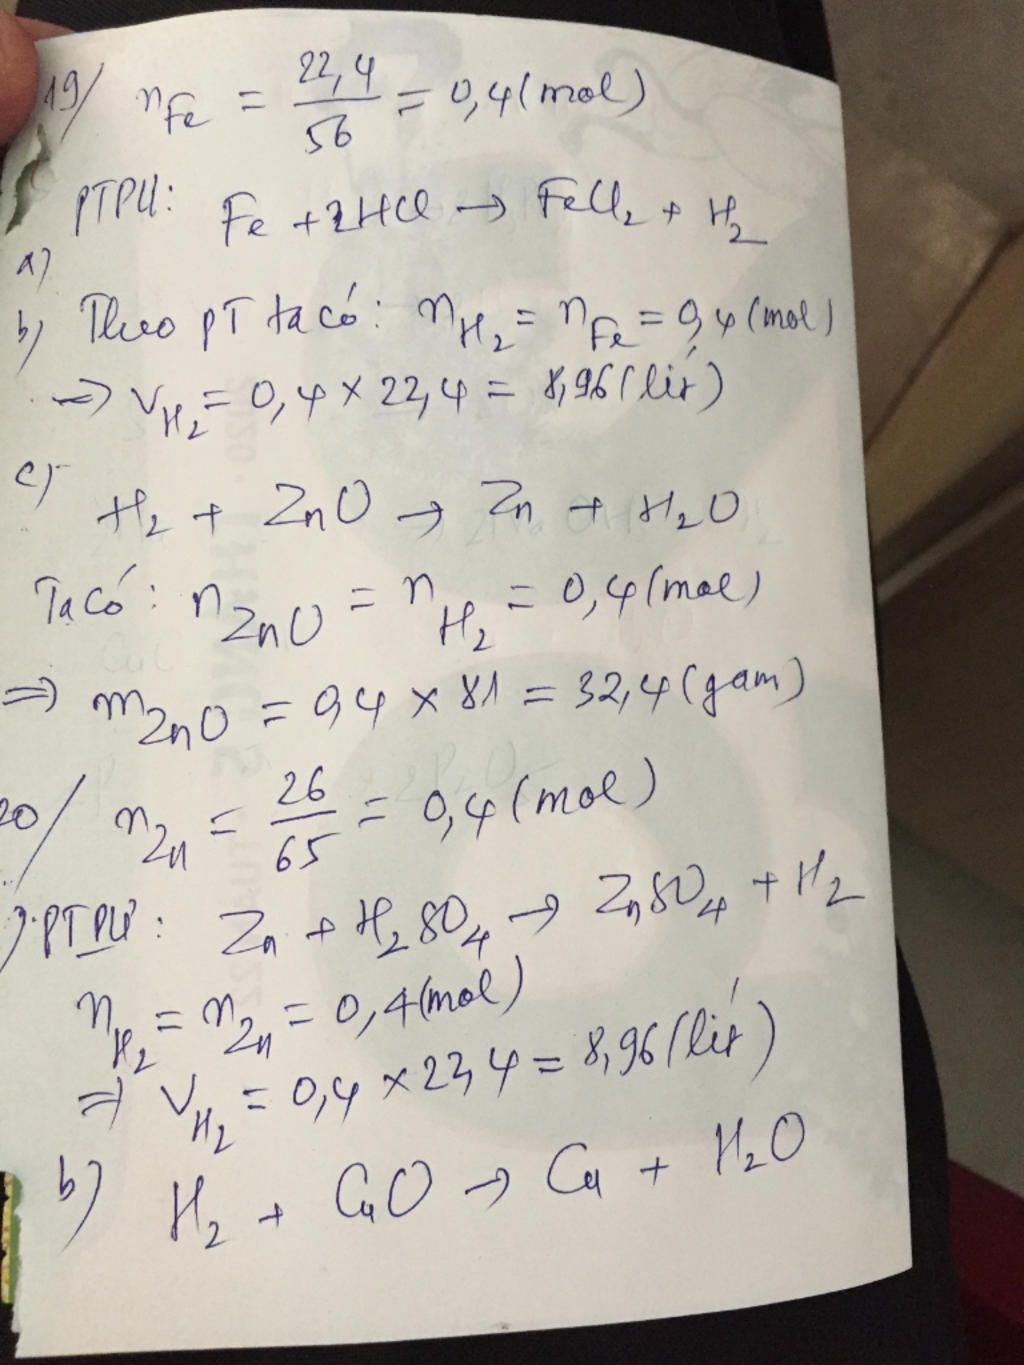 19/ nFe = 22,4/56 = 0,4 (mol)
PTPƯ: Fe + 2HCl → FeCl2 + H2
a)
b) Theo pT ta có: nH2 = nFe = 0,4 (mol)
=> VH2 = 0,4 × 22,4 = 8,96 (lít)
c)
H2 + ZnO → Zn + H2O
Ta có: nZnO = nH2 = 0,4 (mol)
=> mZnO = 0,4 × 81 = 32,4 (gam)
20/ nZn = 26/65 = 0,4 (mol)
PTPƯ: Zn + H2SO4 → ZnSO4 + H2
nH2 = nZn = 0,4 (mol)
=> VH2 = 0,4 × 22,4 = 8,96 (lít)
b) H2 + CuO → Cu + H2O